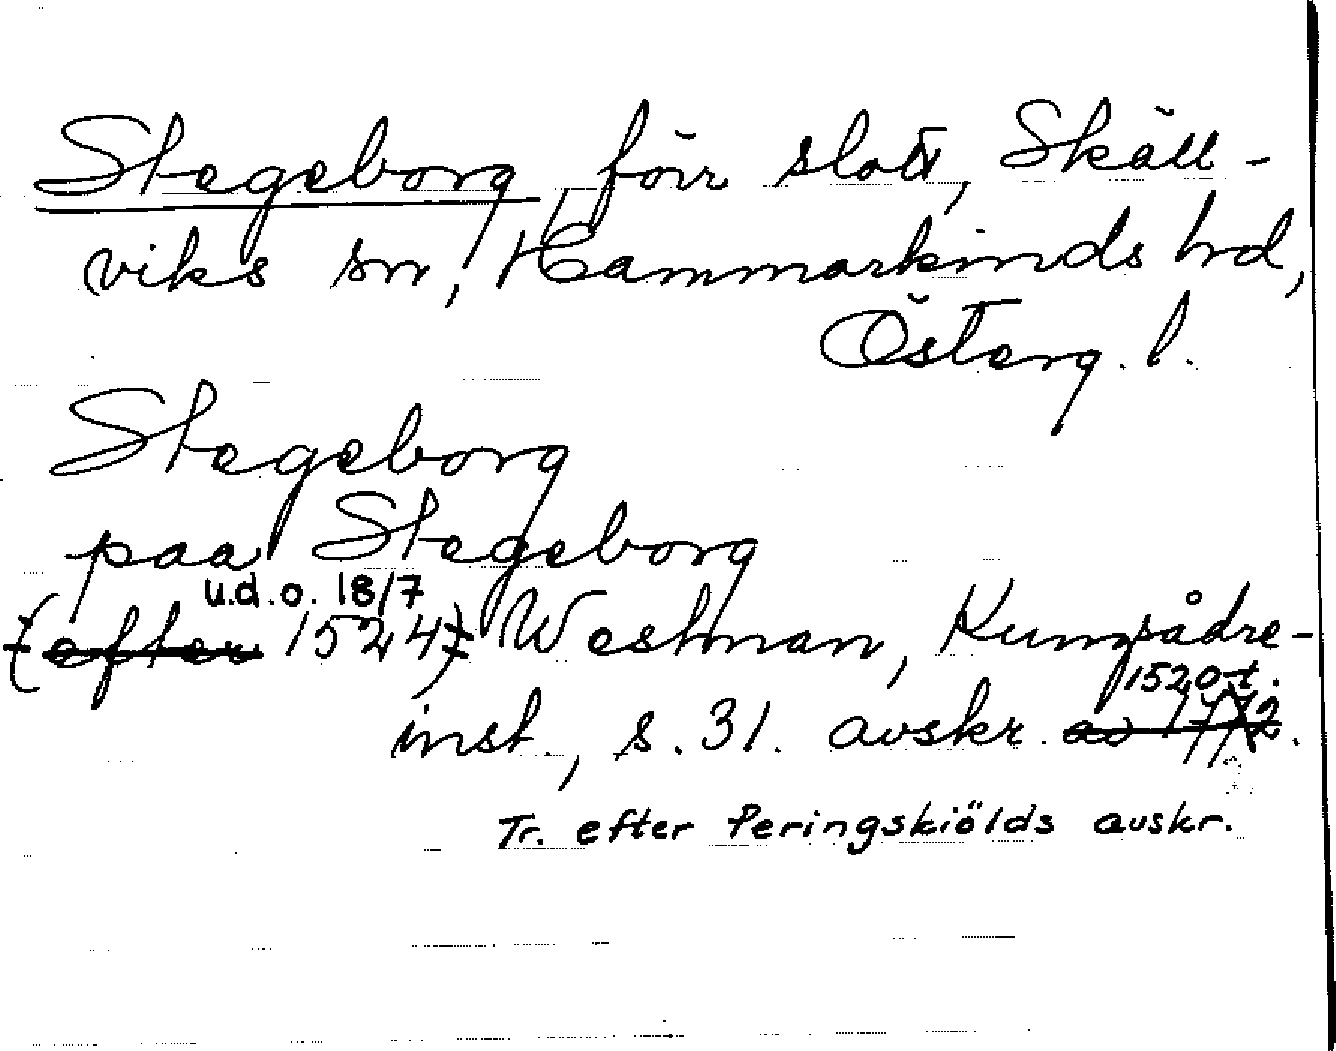 Stegeborg, förr slott, Skäll-
viks sn, Hammarkinds hd,
Österg. l.
Stegeborg
paa Stegeborg
u.d.o. 18/7
(efter 1524) Westman, Kungsådre-
1520-t.
inst., s. 31. avskr. av 1772.
Tr. efter Peringskiölds avskr.